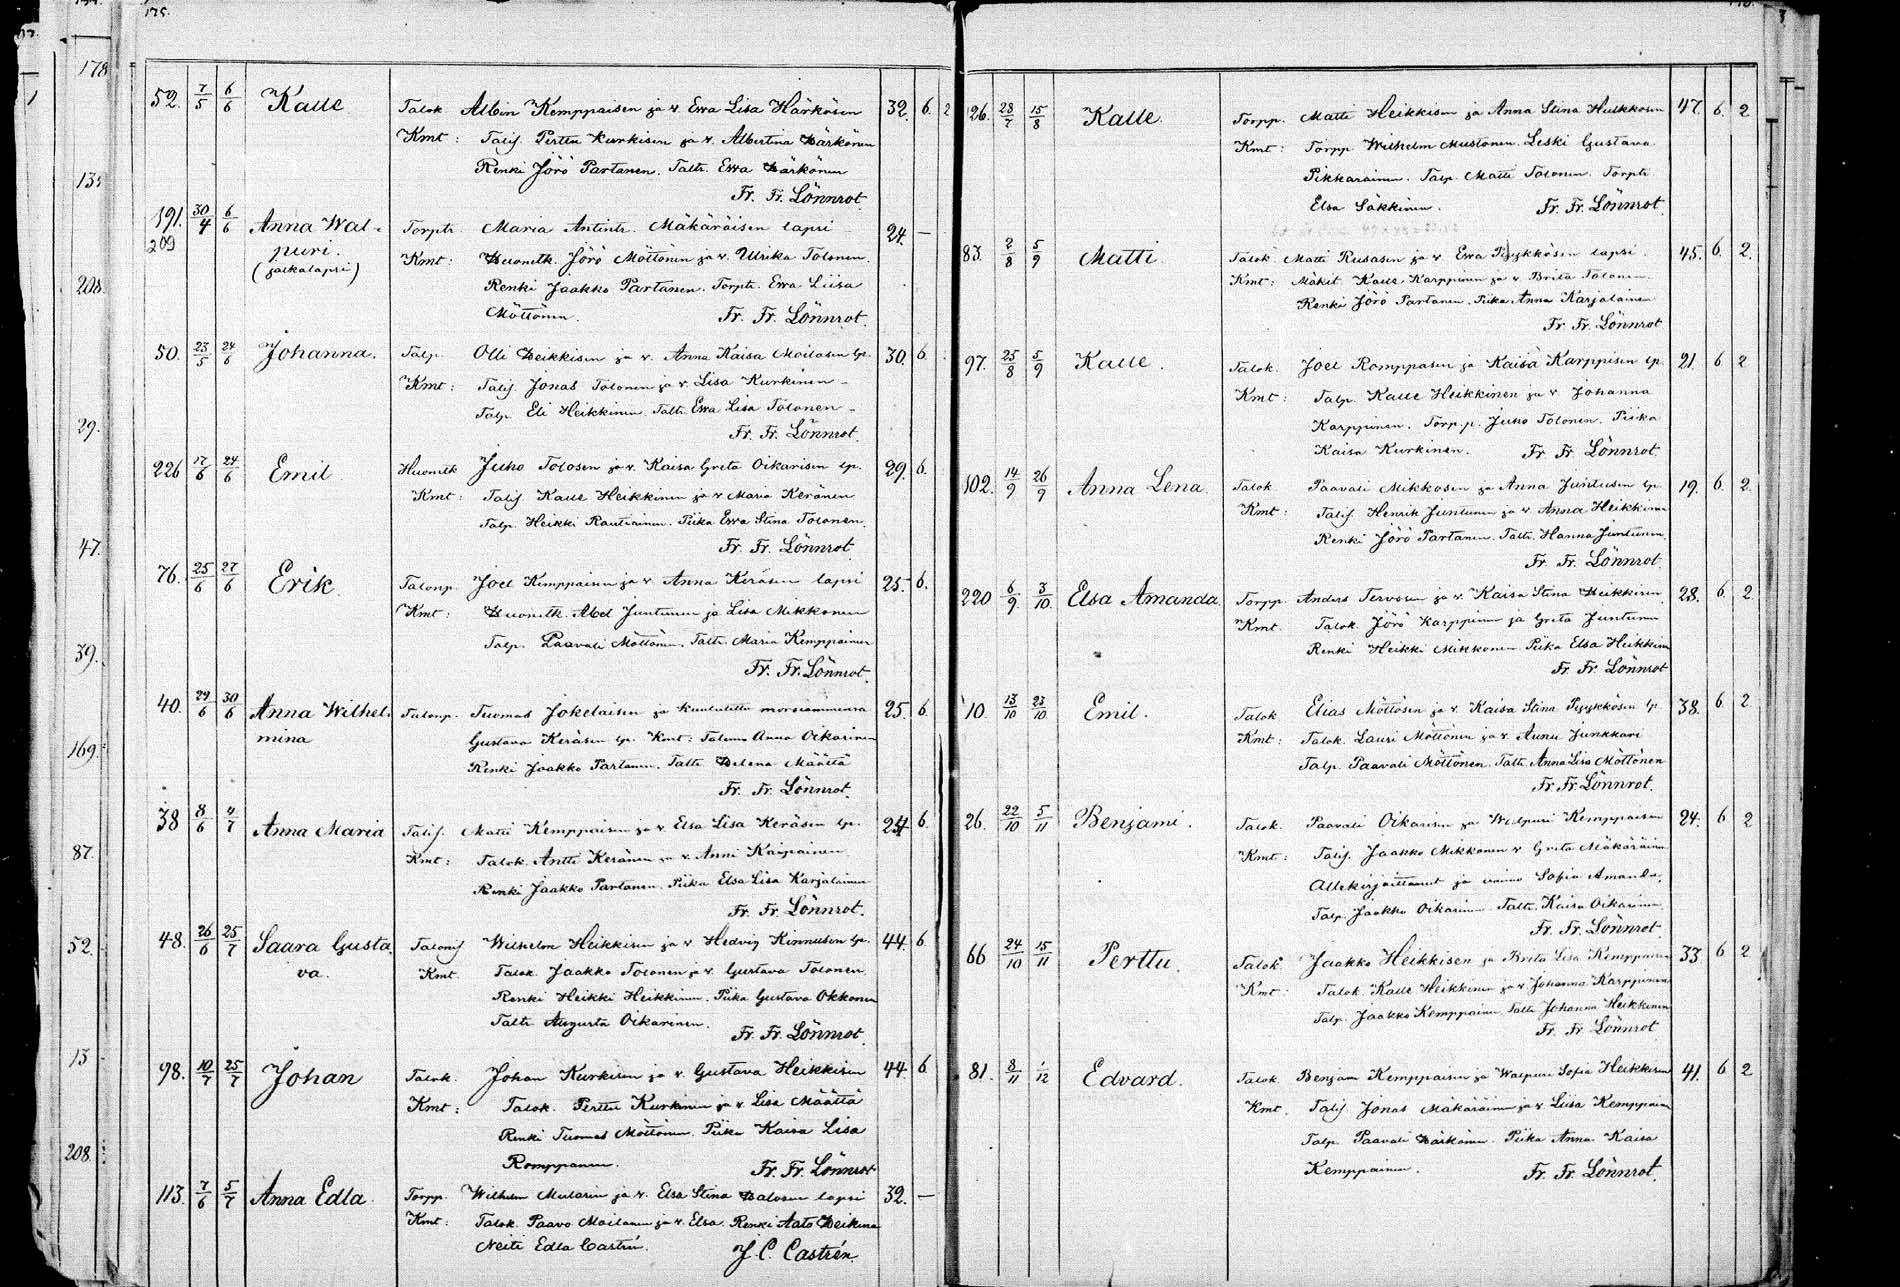 175.
178
52. 7/5 6/6 Kalle Talok Albin Kemppaisen ja v. Ewa Lisa Härkösen 32. 6. 2
Kmt: Talij. Perttu Kurkisen ja v. Albertina Härkönen
Renki Jörö Partanen. Taltr. Ewa Härkönen
Fr. Fr. Lönnrot.
191. 30/4 6/6 Anna Wal- Torptr. Maria Antintr. Mäkäräisen lapsi 24. —
209 puri. Kmt: Huonetk. Jörö Möttönen ja v. Ulrika Tolonen.
(jalkalapsi) Renki Jaakko Partanen. Torptr. Ewa Liisa
Möttönen. Fr. Fr. Lönnrot.
50. 23/5 24/6 Johanna. Talp. Olli Heikkisen ja v. Anna Kaisa Moilasen lp. 30. 6.
Kmt: Talij. Jonas Tolonen ja v. Lisa Kurkinen
Talp. Eli Heikkinen. Taltr. Ewa Lisa Tolonen
Fr. Fr. Lönnrot.
226 17/6 24/6 Emil Huonetk Juho Tolosen ja v. Kaisa Greta Oikarisen lp. 29. 6.
Kmt: Talij. Kalle Heikkinen ja v. Maria Keränen
Talp. Heikki Rautiainen. Piika Ewa Stina Tolonen.
Fr. Fr. Lönnrot.
76. 25/6 27/6 Erik. Talonp. Joel Kemppaisen ja v. Anna Keräsen lapsi 25. 6.
Kmt: Huonetk. Abel Juntunen ja Lisa Mikkonen
Talp. Paavali Möttönen. Taltr. Maria Kemppainen
Fr. Fr. Lönnrot.
40. 29/6 30/6 Anna Wilhel- Talonp. Tuomas Jokelaisen ja kuulutettu morsiammensa 25. 6.
mina Gustava Keräsen lp. Kmt: Anna Oikarinen
Renki Jaakko Partanen. Taltr. Helena Määttä
Fr. Fr. Lönnrot.
38 8/6 4/7 Anna Maria Talij. Matti Kemppaisen ja v. Elsa Lisa Keräsen lp. 24. 6.
Kmt: Talok. Antti Keränen ja v. Anni Kaipainen.
Renki Jaakko Partanen. Piika Elsa Lisa Karjalainen
Fr. Fr. Lönnrot.
48. 26/6 25/7 Saara Gusta- Talonij Wilhelm Heikkisen ja v Hedvig Kinnusen lp. 44. 6.
va. Kmt. Talok. Jaakko Tolonen ja v. Gustava Tolonen.
Renki Heikki Heikkinen. Piika Gustava Okkonen
Taltr Augusta Oikarinen. Fr. Fr. Lönnrot.
98. 10/7 25/7 Johan Talok. Johan Kurkisen ja v. Gustava Heikkisen 44. 6
Kmt: Talok. Perttu Kurkinen ja v. Lisa Määttä
Renki Tuomas Möttönen. Piika Kaisa Lisa
Romppanen. Fr. Fr. Lönnrot
113. 7/6 5/7 Anna Edla. Torpp. Wilhelm Mularin ja v. Elsa Stina Halosen lapsi 32. —
Kmt: Talok. Paavo Moilanen ja v. Elsa. Renki Aato
Neiti Edla Castrén. J. C. Castrén.
126. 28/7 15/8 Kalle. Torpp. Matti Heikkisen ja Anna Stina Hulkkosen 47. 6. 2
Kmt: Torpp Wilhelm Mustonen. Leski Gustava
Pikkarainen. Talp. Matti Tolonen. Torptr.
Elsa Säkkinen. Fr. Fr. Lönnrot.
83. 2/8 5/9 Matti. Talok. Matti Rusasen ja v. Ewa Pyykkösen lapsi. 45. 6. 2.
Kmt: Mäkit. Kalle Karppinen ja v Brita Tolonen.
Renki Jörö Partanen. Piika Anna Karjalainen
Fr. Fr. Lönnrot
97. 25/8 5/9 Kalle. Talok. Joel Romppasen ja Kaisa Karppisen lp. 21. 6 2
Kmt: Talp. Kalle Heikkinen ja v Johanna
Karppinen. Torp.p. Juho Tolonen. Piika
Kaisa Kurkinen. Fr. Fr. Lönnrot.
102. 14/9 26/9 Anna Lena. Talok Paavali Mikkosen ja Anna Juntusen lp 19. 6. 2.
Kmt: Talij. Henrik Juntunen ja v. Anna Heikkinen
Renki Jörö Partanen. Taltr. Hanna Juntunen.
Fr. Fr. Lönnrot.
220 6/9 3/10. Elsa Amanda. Torpp. Anders Tervosen ja v. Kaisa Stina Heikkisen. 28. 6. 2.
Kmt. Talok. Jörö Karppinen ja Greta Juntunen
Renki Heikki Mikkonen. Piika Elsa Heikkinen
Fr. Fr. Lönnrot
10. 13/10 23/10 Emil. Talok Elias Möttösen ja v. Kaisa Stina Pyykkösen lp. 38. 6. 2.
Kmt: Talok. Lauri Möttönen ja v. Junkkari
Talp. Paavali Möttönen. Taltr. Anna Lisa Möttönen
Fr. Fr. Lönnrot.
26. 22/10 5/11 Benjami. Talok. Paavali Oikarisen ja Walpuri Kemppaisen 24. 6 2
Kmt: Talij. Jaakko Mikkonen v. Greta Mäkäräinen
Allekirjoittanut ja vaimo Sofia Amanda.
Talp. Jaakko Oikarinen. Taltr. Kaisa Oikarinen.
Fr. Fr. Lönnrot.
66 24/10 15/11 Perttu. Talok Jaakko Heikkisen ja Brita Lisa Kemppaisen 33 6 2
Kmt. Talok. Kalle Heikkinen ja v. Johanna Karppinen
Talp. Jaakko Kemppainen Taltr. Johanna Heikkinen
Fr. Fr. Lönnrot
81. 8/11 1/12 Edvard. Talok. Benjam Kemppaisen ja Walpuri Sofia Heikkisen 41. 6 2
Kmt. Talij Jonas Mäkäräinen ja v. Liisa Kemppainen
Talp. Paavali Härkönen. Piika Anna Kaisa
Kemppainen. Fr. Fr. Lönnrot.
208.
29.
47.
39.
169.
87.
52.
13
208.